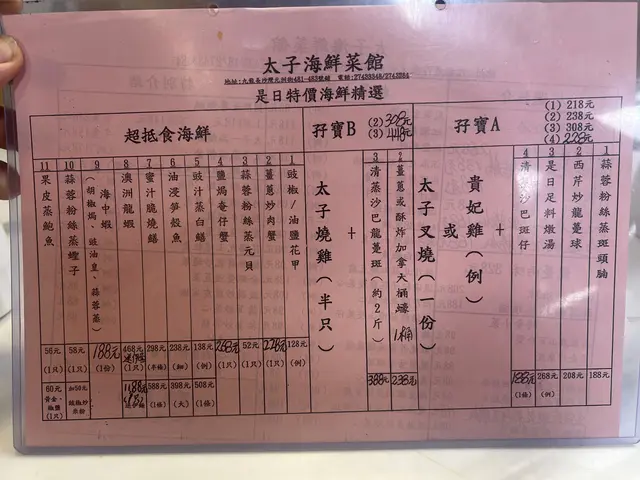 太子海鮮菜館
地址:九龍長沙灣元州街481-483號鋪 電話:27433348/2743
是日特價海鮮精選
孖寶A
(1) 218元
(2) 238元
(3) 308元
(4) 228元
1 蒜蓉粉絲蒸斑頭腩 188元
2 西芹炒龍躉球 208元
3 是日足料燉湯 268元 (例)
4 清蒸沙巴斑仔 188元 (1條)
+
貴妃雞(例)
或
太子叉燒(一份)
孖寶B
(2) 308元
(3) 448元
2 薑蔥或酥炸加拿大桶蠔 1桶 238元
3 清蒸沙巴龍躉斑(約2斤) 388元
+
太子燒雞(半只)
超抵食海鮮
1 豉椒/油鹽花甲 128元 (例)
2 薑蔥炒肉蟹 228元 (1只)
3 蒜蓉粉絲蒸元貝 52元 (1只)
4 鹽焗奄仔蟹 268元 (1只)
5 豉汁蒸白鱔 138元 (例) 508元 (1條)
6 油浸笋殼魚 238元 (細) 398元 (大)
7 蜜汁脆燒鱔 298元 (半條) 588元 (1條)
8 澳洲龍蝦 468元 (1只) 1188元
9 海中蝦 (胡椒焗、豉油皇、蒜蓉蒸) 188元 (1份)
10 蒜蓉粉絲蒸蟶子 58元 (1只) 加50元 辣椒炒米粉
11 果皮蒸鮑魚 56元 (1只) 60元 黃金、椒鹽 (1只)